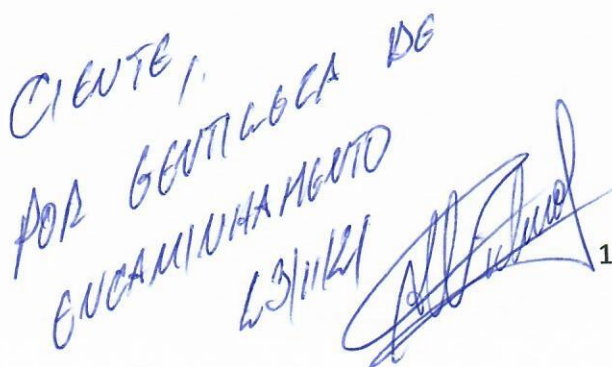 CIENTE,
POR GENTILEZA DE
ENCAMINHAMENTO
23/11/21
1